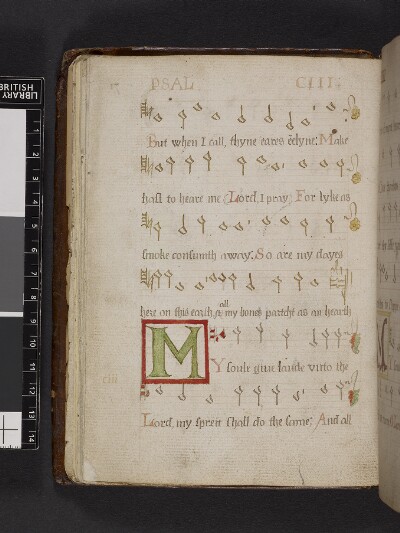 PSAL CIII.
But when I call, thyne eares enclyne: Make
hast to heare me Lord, I pray: For lyke as
smoke consumth away: So are my dayes
here on this earth, & all my bones partcht as an hearth
MY soule giue laude vnto the
ciii
Lord, my spreit shall do the same: And all
BRITISH LIBRARY
1
2
3
4
5
6
7
8
9
10
11
12
13
14